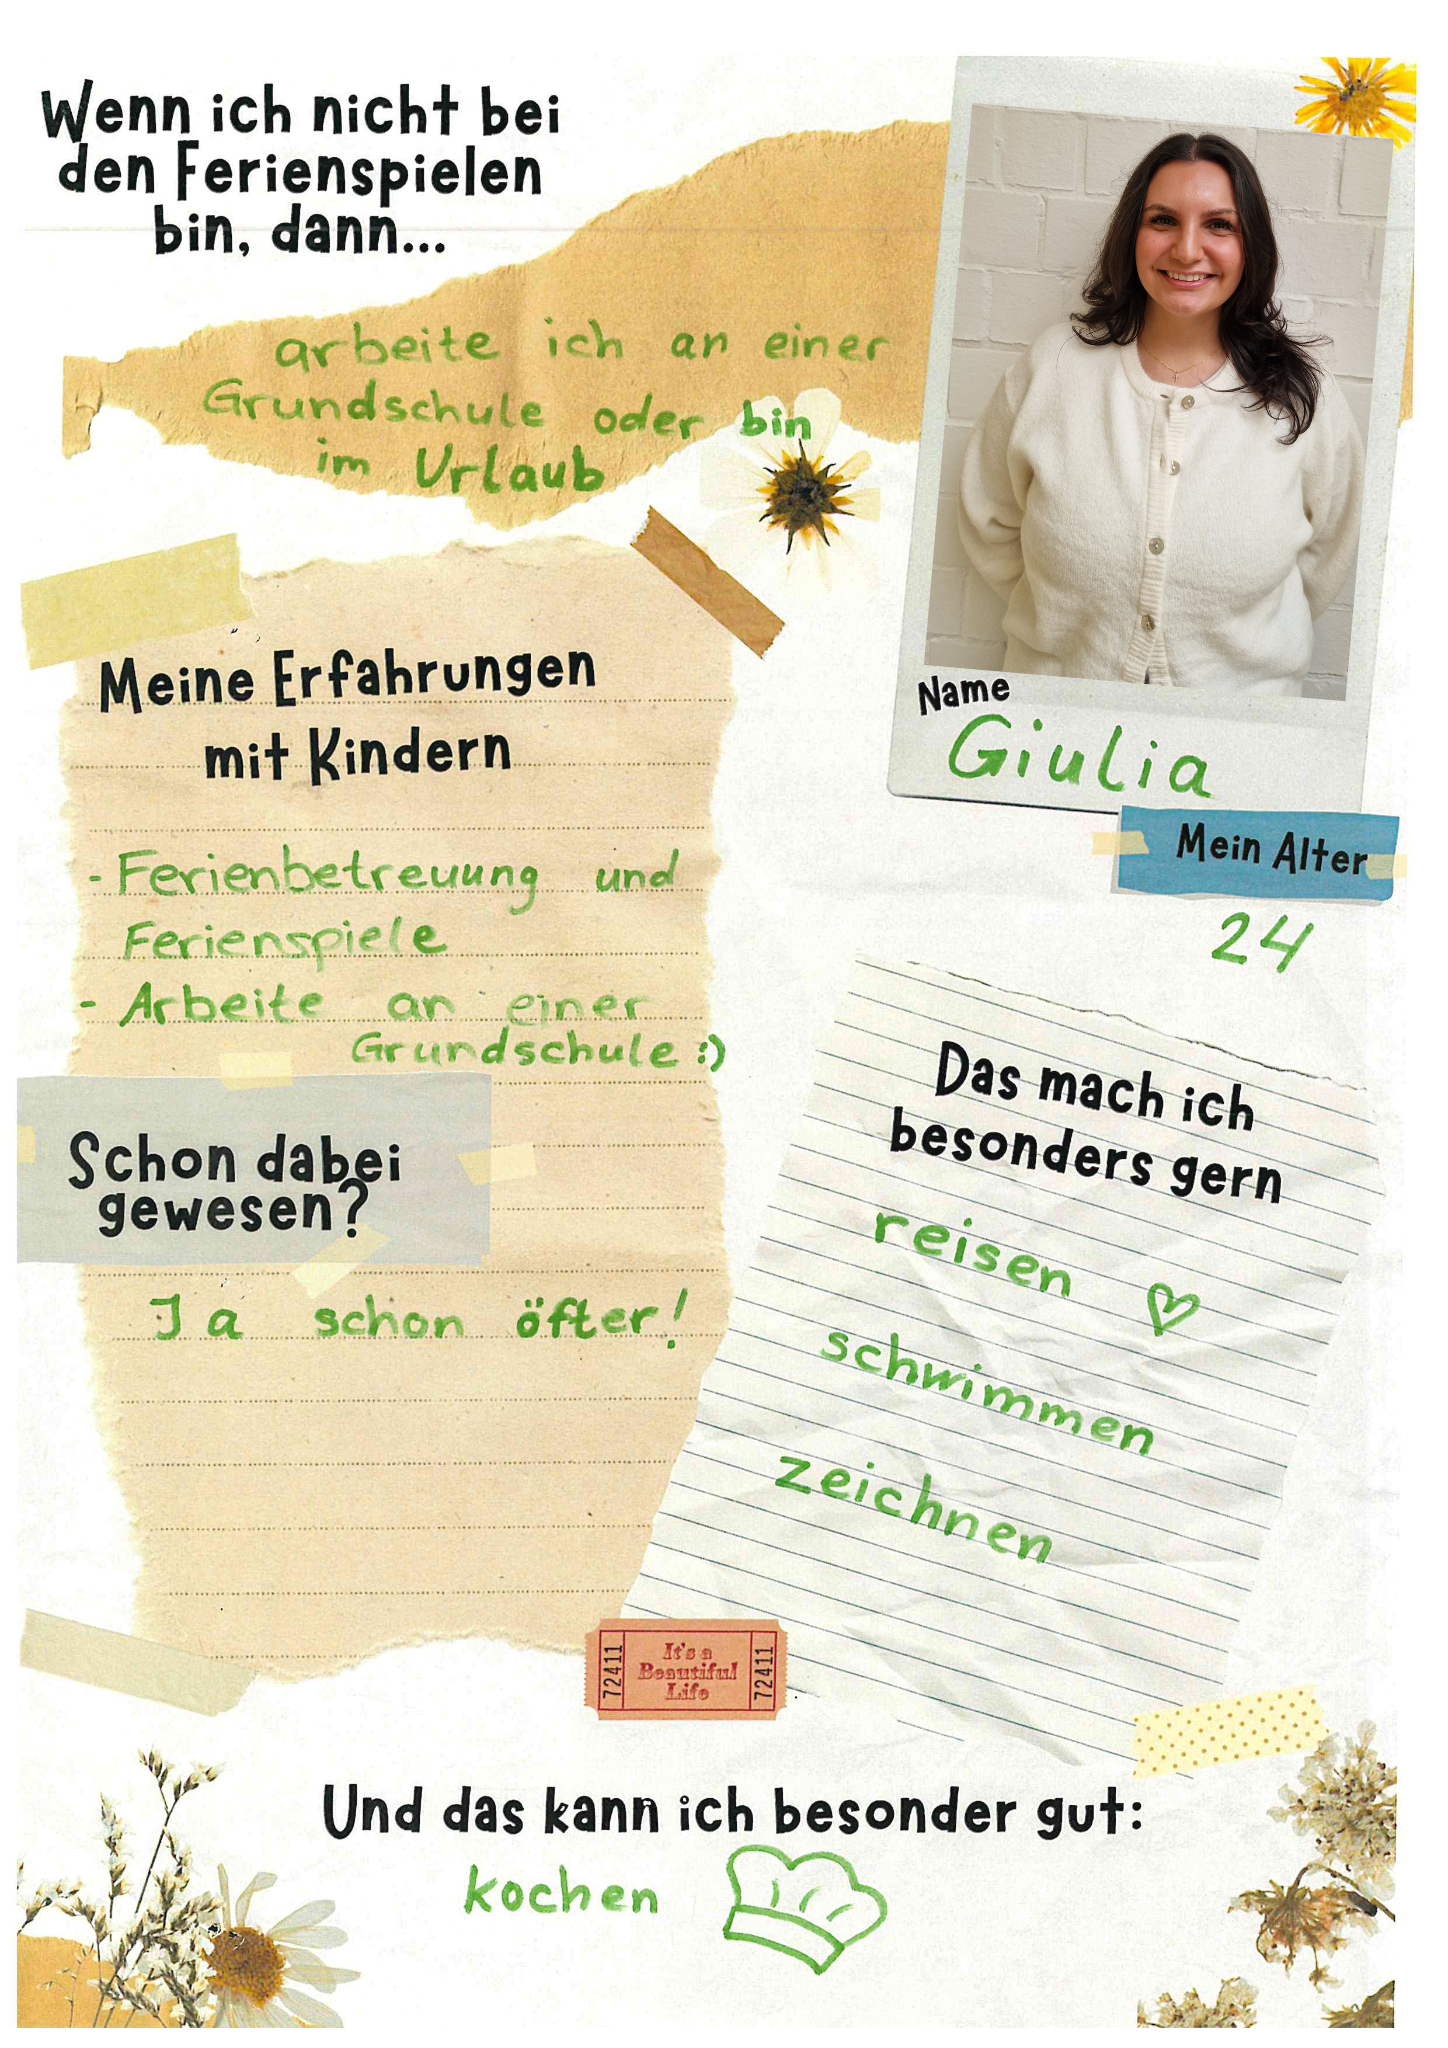 Wenn ich nicht bei
den Ferienspielen
bin, dann...
arbeite ich an einer
Grundschule oder bin
im Urlaub
Name
Giulia
Mein Alter
24
Meine Erfahrungen
mit Kindern
- Ferienbetreuung und
Ferienspiele
- Arbeite an einer
Grundschule :)
Schon dabei
gewesen?
Ja schon öfter!
Das mach ich
besonders gern
reisen ♡
schwimmen
zeichnen
72411
It's a
Beautiful
Life
72411
Und das kann ich besonder gut:
kochen